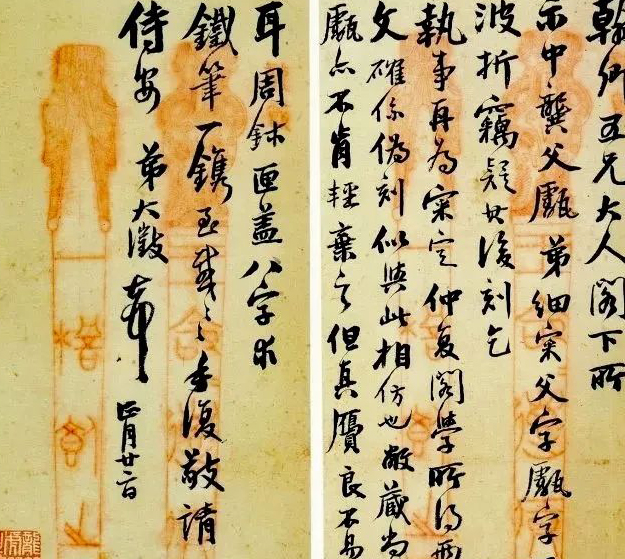 翰卿五兄大人閣下所
示中龔父甗弟細宷父字甗字
波折竊疑其後刻乞
執事再為宷定仲复閣學所得
文確係偽刻似與此相仿也敝藏尚
甗亦不肯輕棄之但真贗良不易
耳周鉢匣蓋八字求
鐵筆一鐫至感〻手復敬請
侍安 弟大澂頓首 正月廿二日